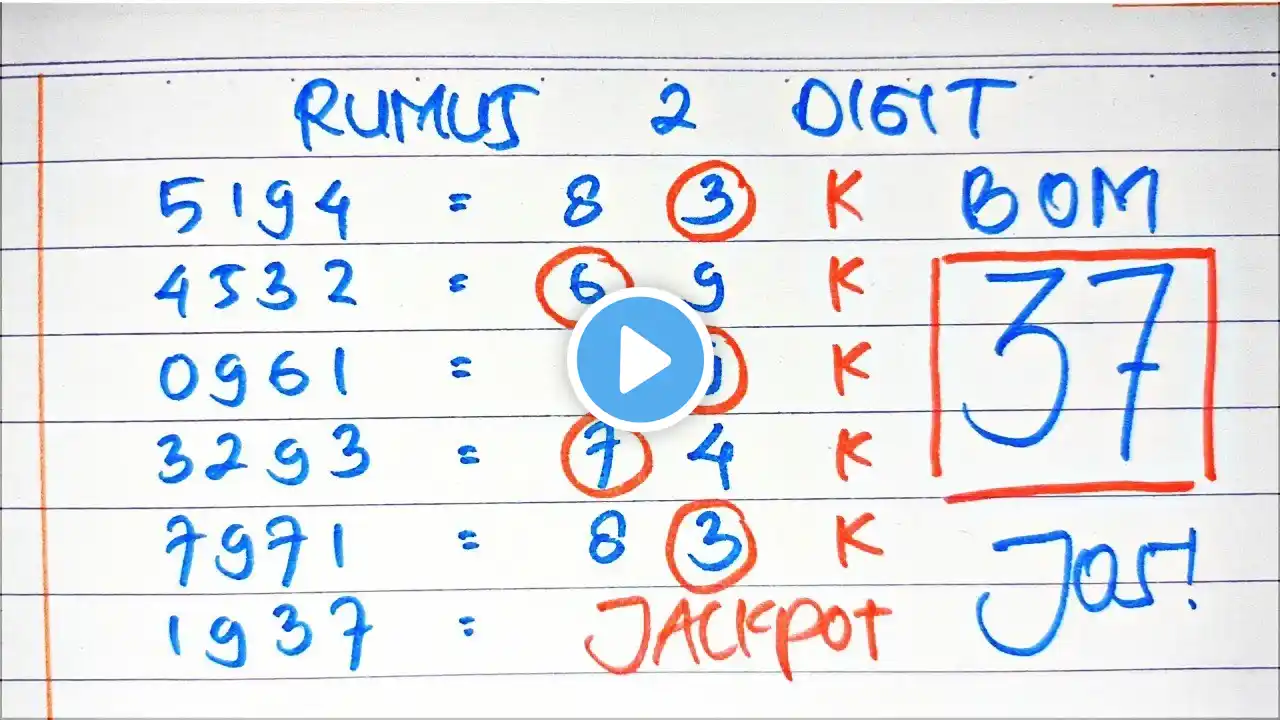 RUMUS 2 DIGIT
5194 = 8 3 K BOM
4532 = 6 9 K 37
0961 = K
3293 = 7 4 K
7971 = 8 3 K JOS!
1937 = JACKPOT